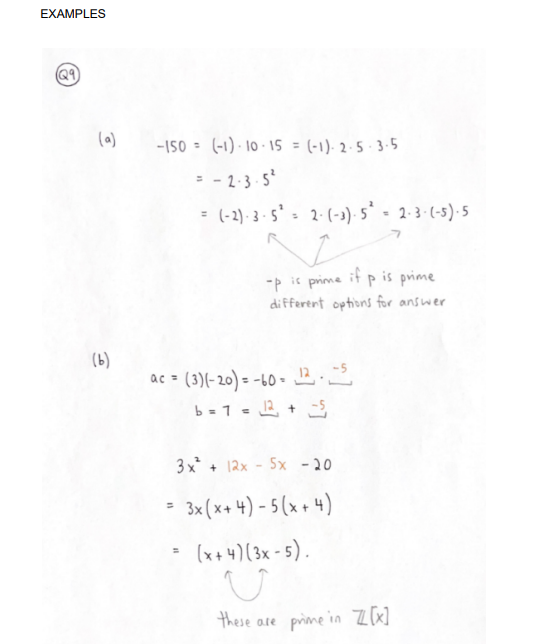 EXAMPLES
Q9
(a) -150 = (-1) · 10 · 15 = (-1) · 2 · 5 · 3 · 5
= - 2 · 3 · 5²
= (-2) · 3 · 5² = 2 · (-3) · 5² = 2 · 3 · (-5) · 5
-p is prime if p is prime
different options for answer
(b) ac = (3)(-20) = -60 = 12 · -5
b = 7 = 12 + -5
3x² + 12x - 5x - 20
= 3x(x+4) - 5(x+4)
= (x+4)(3x-5).
these are prime in ℤ[x]